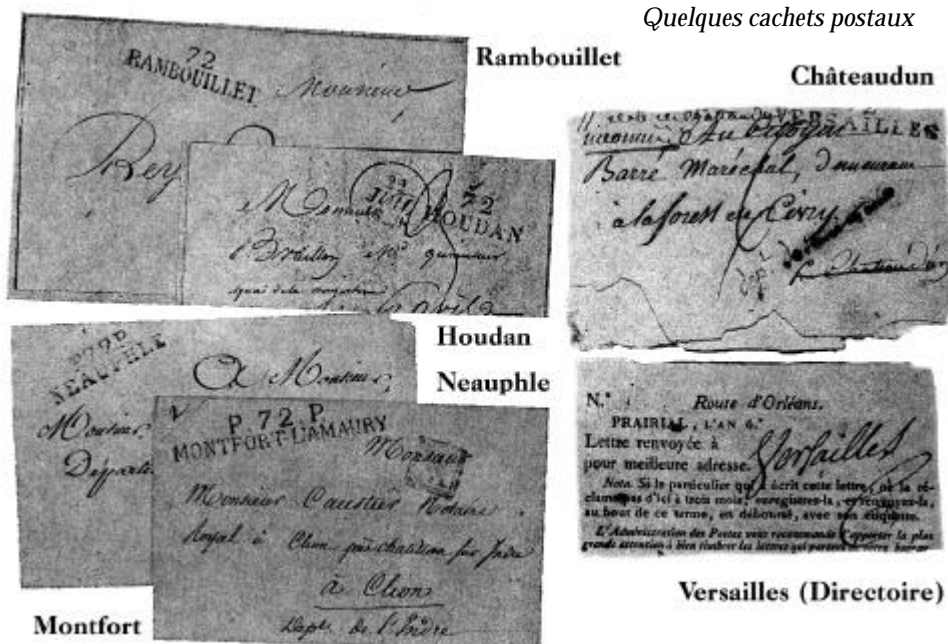 Quelques cachets postaux
Rambouillet
72
RAMBOUILLET
Monsieur
Rey
22
JUIN
72
HOUDAN
quai de la
Houdan
Neauphle
P 72 P
NEAUPHLE
A Monsieur
Monsieur
Départe
P. 72. P.
MONTFORT-L'AMAURY
Monsieur
Monsieur Caustier Notaire
Royal à Clion près chatillon sur Indre
à Clion
Dept de l'Indre
Montfort
Châteaudun
VERSAILLES
Au Citoyen
Barré Maréchal, demeurant
à la forest de Civry
N.°
Route d'Orléans.
PRAIRIAL, L'AN 6.e
Lettre renvoyée à
Versailles
pour meilleure adresse.
Nota. Si le particulier qui a écrit cette lettre, ne la ré-
clame pas d'ici à trois mois, enregistrez-la, et renvoyez-la,
au bout de ce terme, en débourse, avec son étiquette.
L'Administration des Postes vous recommande d'apporter la plus
grande attention à bien timbrer les lettres qui partent de votre bureau
Versailles (Directoire)